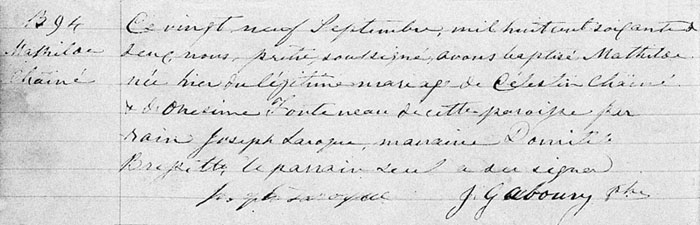 B 94
Mathilde
Chaîné
Ce vingt neuf Septembre, mil huit cent soixante &
deux, nous, prêtre soussigné, avons baptisé Mathilde
née hier du légitime mariage de Célestin Chaîné
& de Onesime Fonteneau de cette paroisse par
rain Joseph Laroque, marraine Domitile
le parrain seul a su signer
Joseph Laroque J. Gaboury ptre